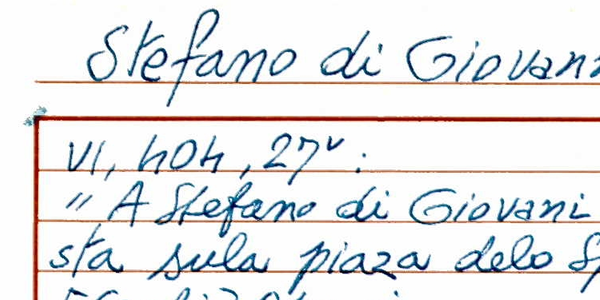 Stefano di Giovani
VI, 404, 27v:
"A Stefano di Giovani
sta sula piaza delo